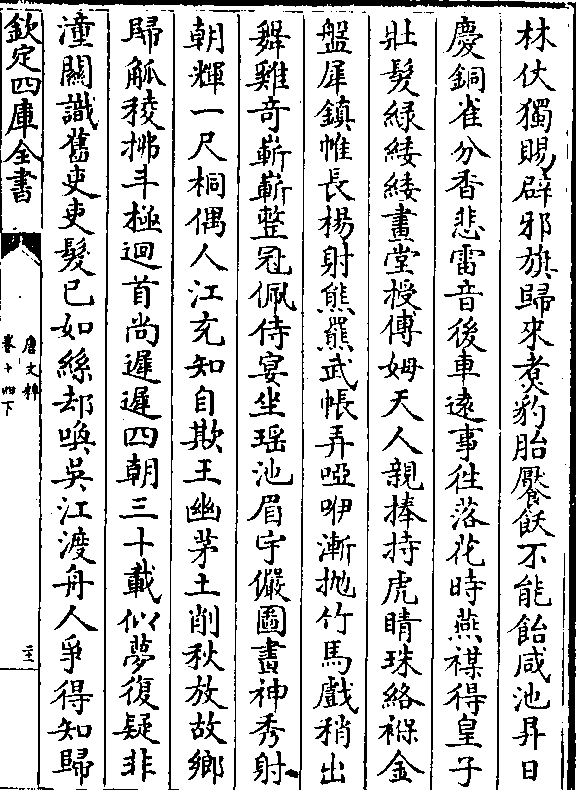 林仗獨賜辟邪旗歸來煑豹胎饜飫不能飴咸池昇日
慶銅雀分香悲雷音後車遠事往落花時燕禖得皇子
壯髮緑緌緌畫堂授傅姆天人親捧持虎睛珠絡褓金
盤犀鎮帷長楊射熊羆武帳弄啞咿漸抛竹馬戲稍出
舞雞竒嶄嶄整冠佩侍宴坐瑶池眉宇儼圖畫神秀射
朝輝一尺桐偶人江充知自欺王幽茅土削秋放故鄉
歸觚稜拂斗極迴首尚遲遲四朝三十載似夢復疑非
潼關識舊吏吏髮已如絲却喚吳江渡舟人爭得知歸
欽定四庫全書
唐文粹
卷十四下